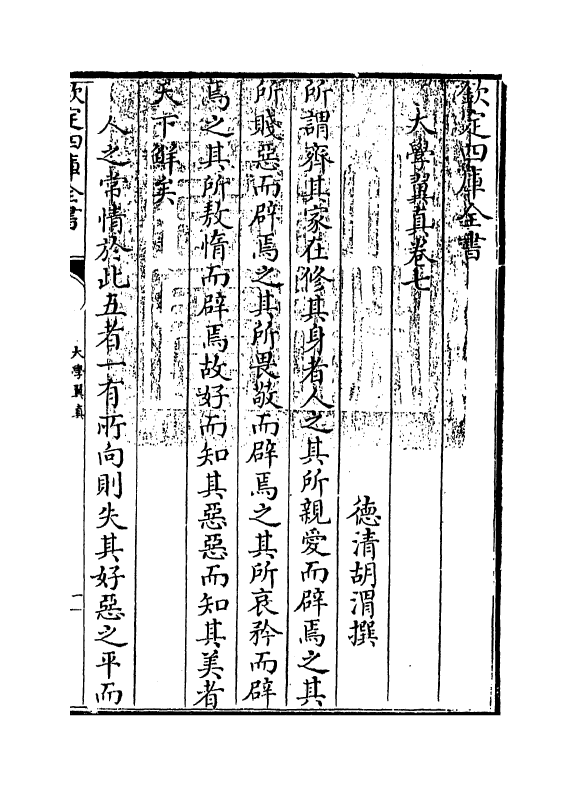 欽定四庫全書
大學翼真卷七
德清胡渭撰
所謂齊其家在修其身者人之其所親愛而辟焉之其
所賤惡而辟焉之其所畏敬而辟焉之其所哀矜而辟
焉之其所敖惰而辟焉故好而知其惡惡而知其美者
天下鮮矣
人之常情於此五者一有所向則失其好惡之平而
欽定四庫全書
大學翼真
一